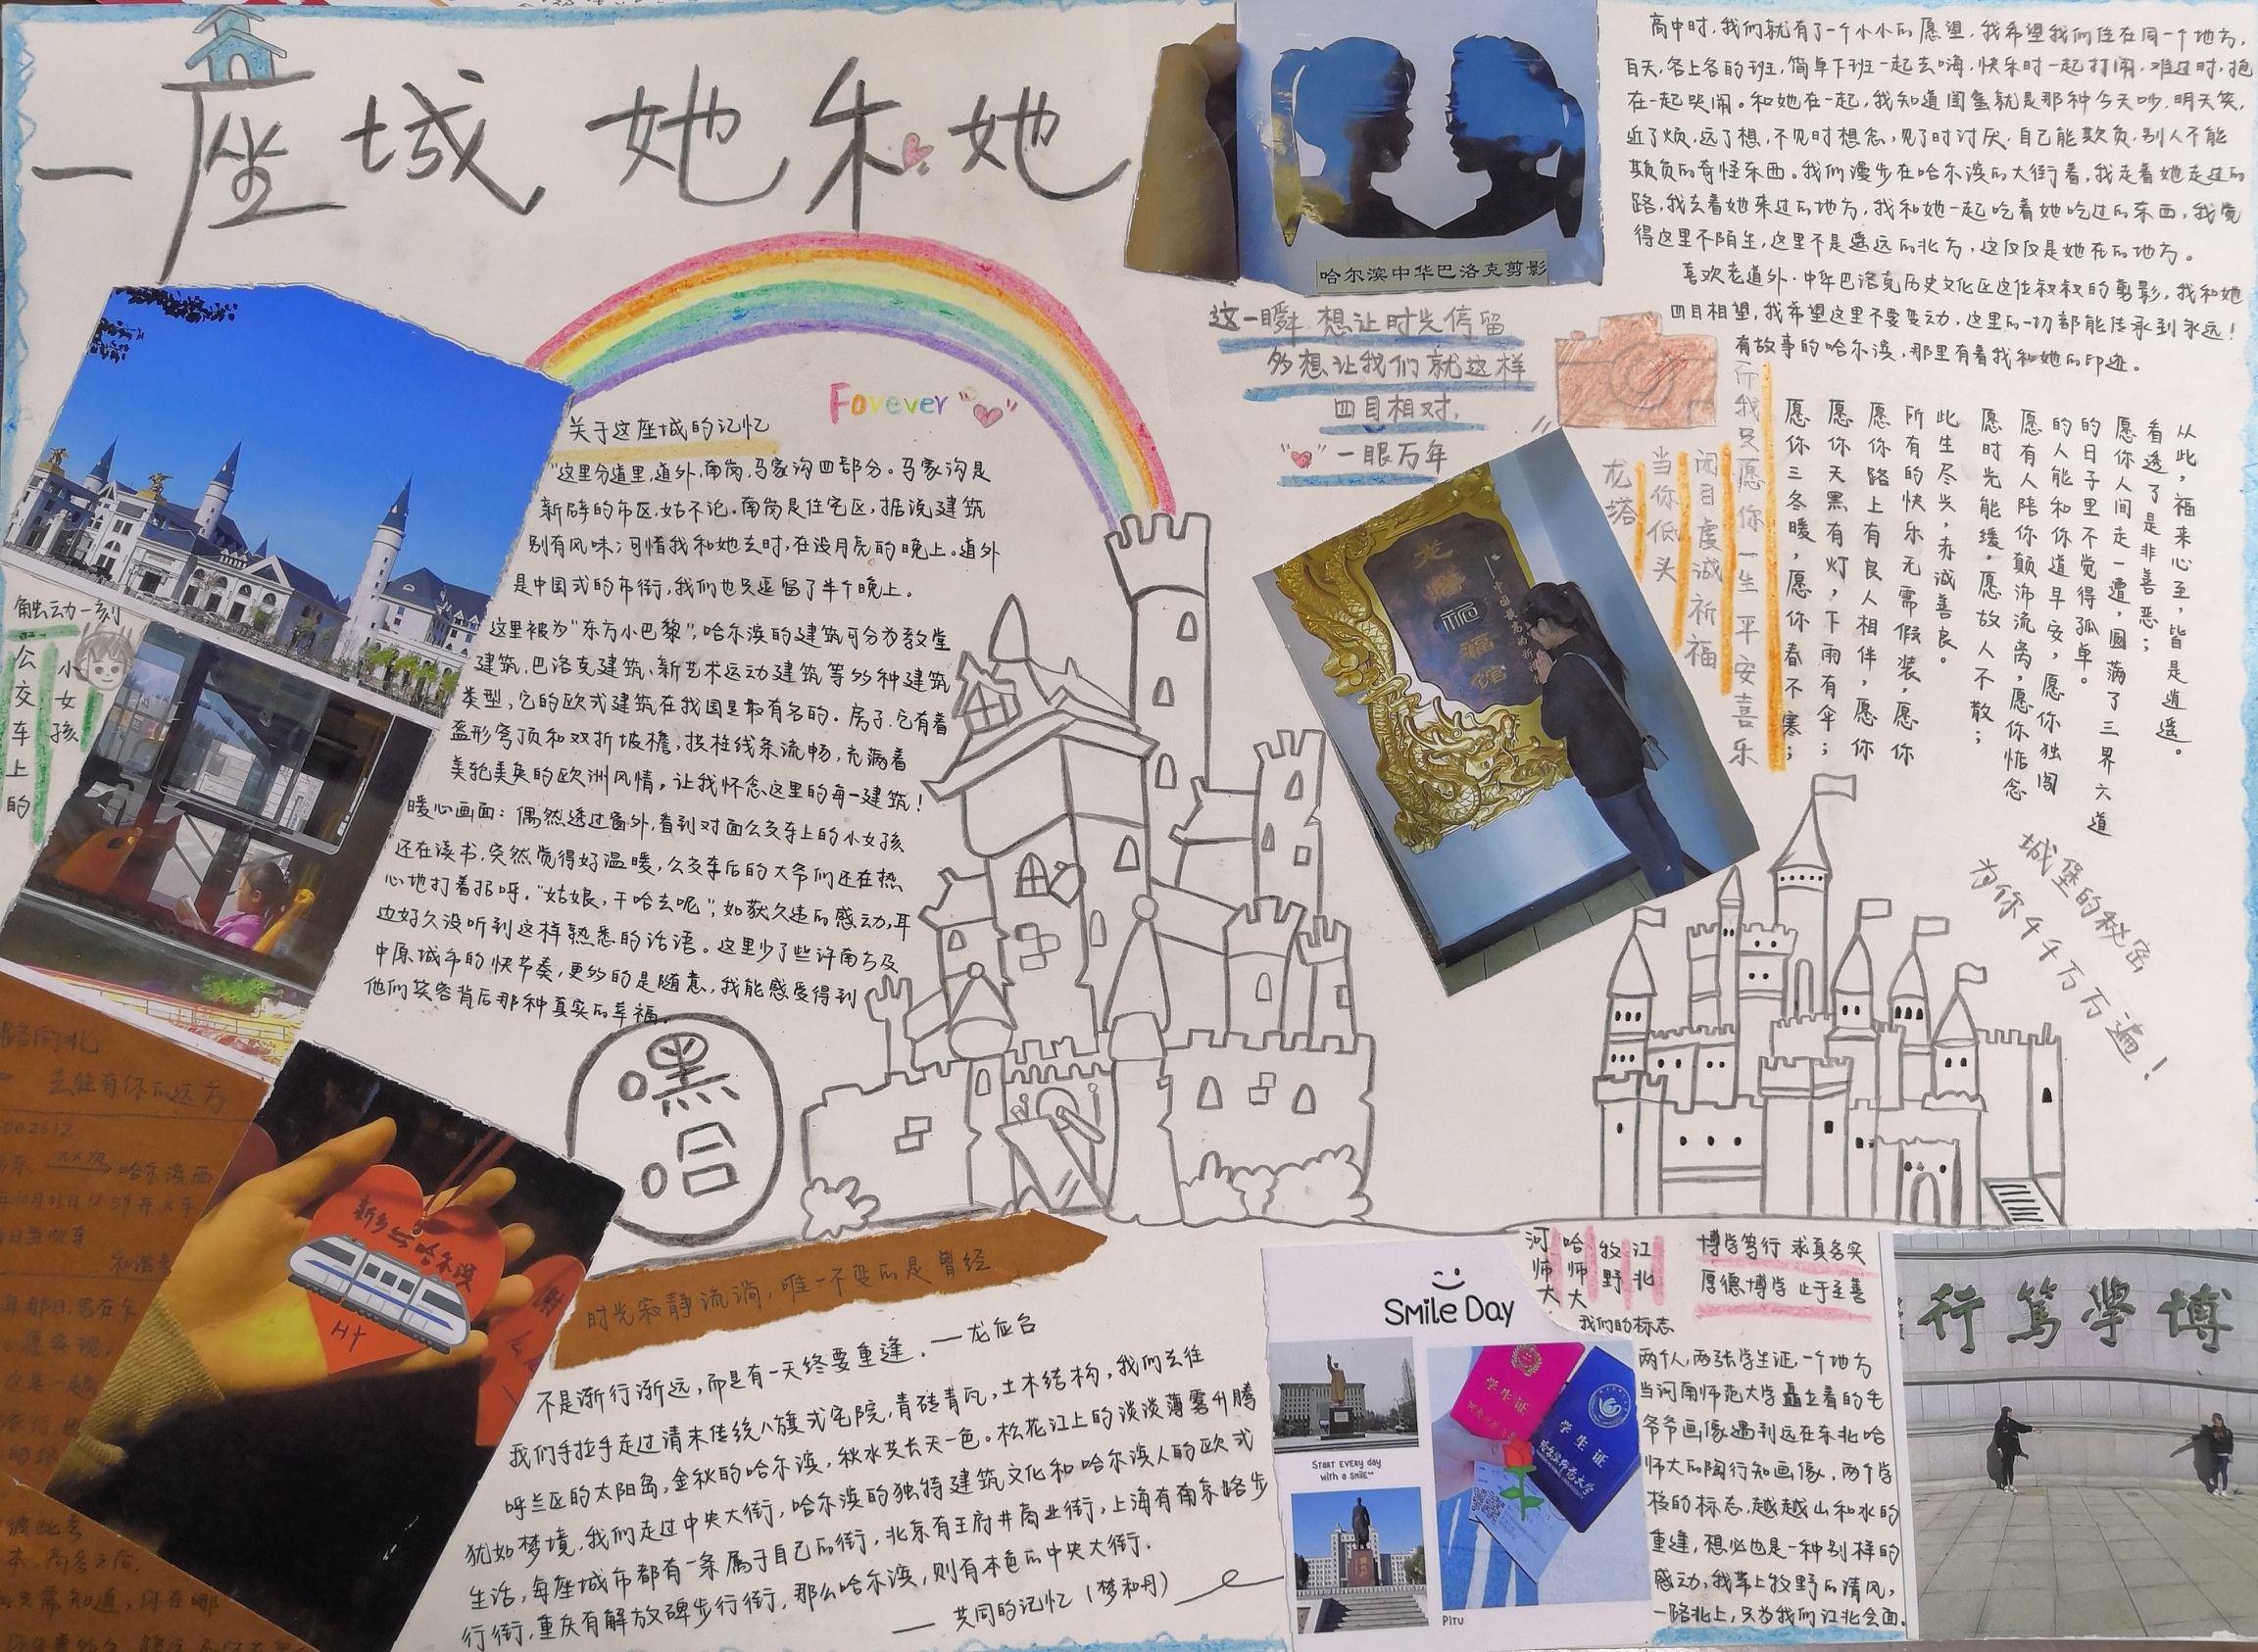 一座城 她和她
哈尔滨中华巴洛克剪影
高中时,我们就有了一个小小的愿望,我希望我们住在同一个地方,
白天,各上各的班,简单下班一起去嗨,快乐时一起打闹,难过时,抱
在一起哭闹。和她在一起,我知道闺蜜就是那种今天吵,明天笑,
近了烦,远了想,不见时想念,见了时讨厌,自己能欺负,别人不能
欺负的奇怪东西。我们漫步在哈尔滨的大街着,我走着她走过的
路,我去着她来过的地方,我和她一起吃着她吃过的东西,我觉
得这里不陌生,这里不是遥远的北方,这仅仅是她在的地方。
喜欢老道外·中华巴洛克历史文化区这位叔叔的剪影,我和她
四目相望,我希望这里不要变动,这里的一切都能传承到永远!
有故事的哈尔滨,那里有着我和她的印迹。
这一瞬,想让时光停留
多想让我们就这样
四目相对,
一眼万年
Forever
关于这座城的记忆
"这里分道里,道外,南岗,马家沟四部分。马家沟是
新辟的市区,姑不论。南岗是住宅区,据说建筑
别有风味;可惜我和她去时,在没月亮的晚上。道外
是中国式的市街,我们也只逗留了半个晚上。
这里被为"东方小巴黎",哈尔滨的建筑可分为教堂
建筑,巴洛克建筑、新艺术运动建筑等多种建筑
类型,它的欧式建筑在我国是最有名的。房子,它有着
盔形穹顶和双折坡檐,挨柱线条流畅,充满着
美轮美奂的欧洲风情,让我怀念这里的每一建筑!
暖心画面:偶然透过窗外,看到对面公交车上的小女孩
还在读书,突然觉得好温暖,公交车后的大爷们还在热
心地打着招呼,"姑娘,干哈去呢",如获久违的感动,耳
边好久没听到这样熟悉的话语。这里少了些许南方及
中原城市的快节奏,更多的是随意,我能感受得到
他们笑容背后那种真实的幸福。
触动一刻
公交车上的
小女孩
龙塔
当你低头
闭目虔诚祈福
而我只愿你一生平安喜乐
龙塔
祈福馆
从此,福来心至,皆是逍遥。
看透了是非善恶;
愿你人间走一遭,圆满了三界六道
的日子里不觉得孤单。
的人能和你道早安,愿你独闯
愿有人陪你颠沛流离,愿你惦念
愿时光能缓,愿故人不散;
此生尽兴,赤诚善良。
所有的快乐无需假装,愿你
愿你路上有良人相伴,愿你
愿你天黑有灯,下雨有伞;
愿你三冬暖,愿你春不寒;
城堡的秘密
为你千千万万遍!
嘿哈
路向北
去往有你的远方
002612
xx次
哈尔滨西
年10月01日12:59开 x车
日当次车
新乡与哈尔滨
时光寂静流淌,唯一不变的是曾经
不是渐行渐远,而是有一天终要重逢. —龙应台
我们手拉手走过清末传统八旗式宅院,青砖青瓦,土木结构,我们去往
呼兰区的太阳岛,金秋的哈尔滨,秋水共长天一色。松花江上的淡淡薄雾升腾
犹如梦境,我们走过中央大街,哈尔滨的独特建筑文化和哈尔滨人的欧式
生活,每座城市都有一条属于自己的街,北京有王府井商业街,上海有南京路步
行街,重庆有解放碑步行街,那么哈尔滨,则有本色的中央大街.
— 共同的记忆(梦和丹)
Smile Day
START EVERY day
with a smile
学生证
学生证
Pitu
河师大
哈师大
牧野
江北
我们的标志
博学笃行 求真务实
厚德博学 止于至善
两个人,两张学生证,一个地方
当河南师范大学矗立着的毛
爷爷画像遇到远在东北哈
师大的陶行知画像,两个学
校的标志,越越山和水的
重逢,想必也是一种别样的
感动,我带上牧野的清风,
一路北上,只为我们江北会面.
行篤學博